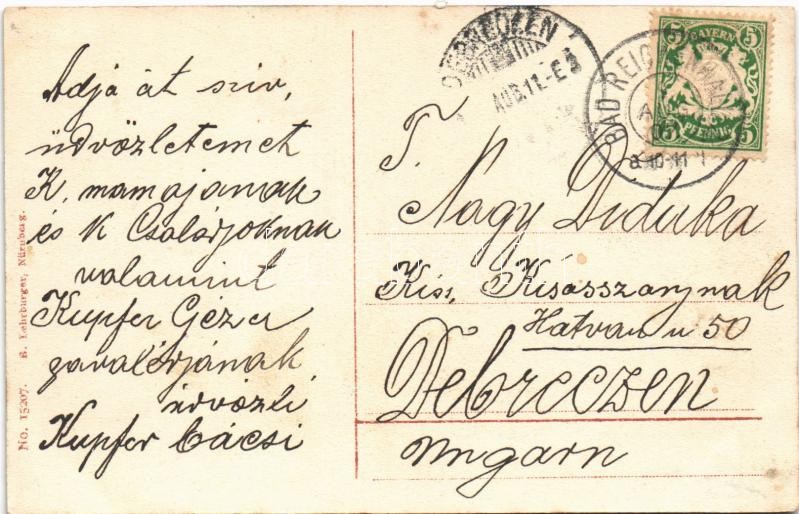 Adja át sziv.
üdvözletemet
K. mamajanak
és K Csaladjoknak
valamint
Kupfer Géza
zavalérjának
üdvözli
Kupfer bácsi
No. 15207. B. Lehrburger, Nürnberg.
DEBRECZEN
AUG. 11.-E 3
BAD REICHENHALL
BAYERN
5 5
5 5
PFENNIG
T.
Nagy Diduka
Kis, Kisasszonynak
Hatvan u 50
Debreczen
Ungarn